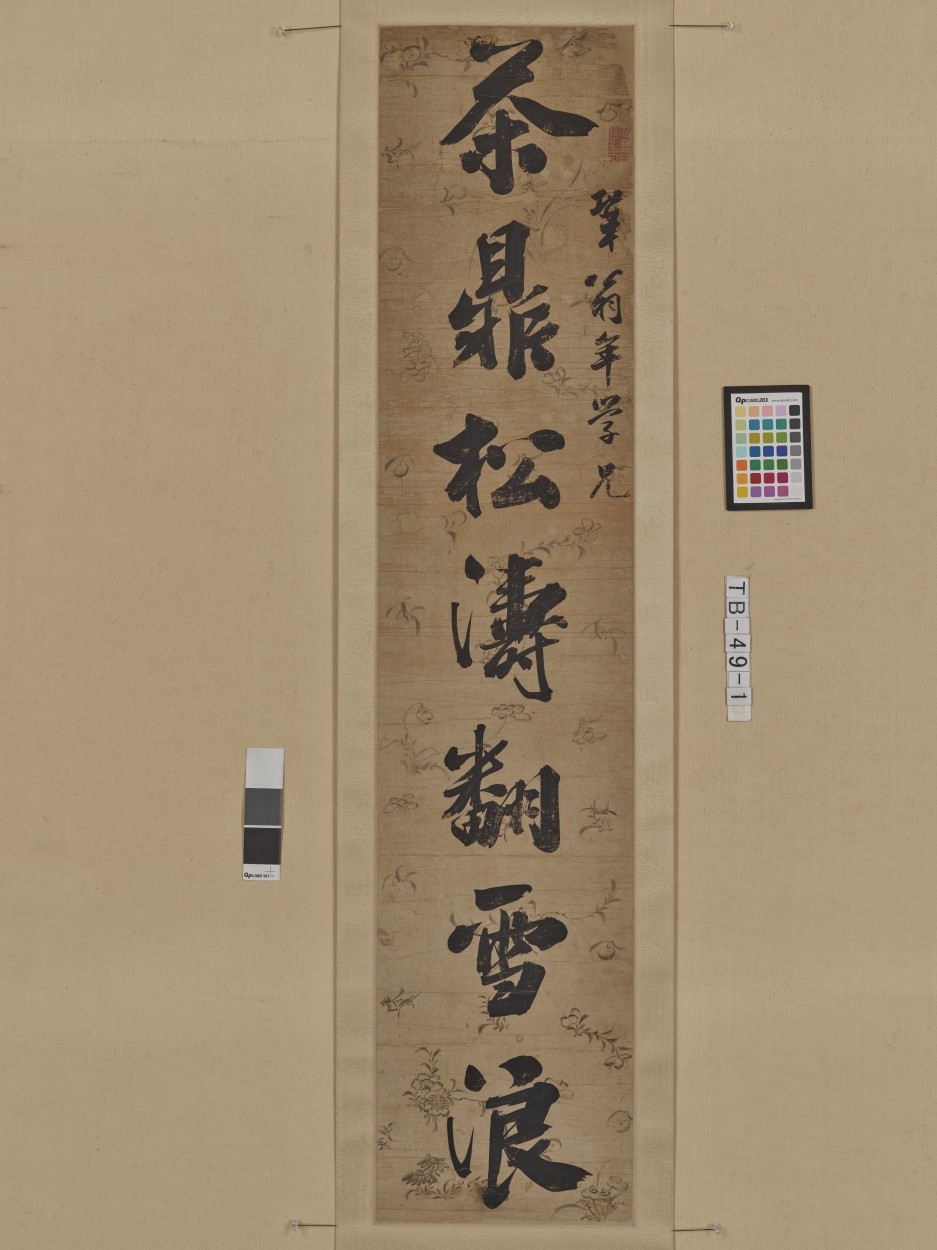 翁年学兄
茶鼎松濤翻雪浪
QpCARD 203
TB-49-1
QpCARD 101